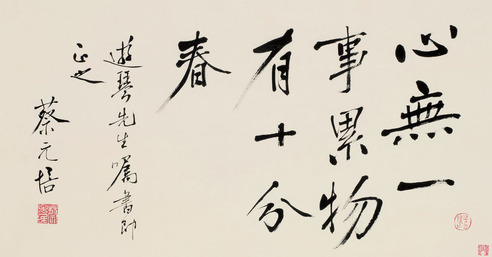 心無一
事累物
有十分
春
遊琴先生囑書即
正之
蔡元培